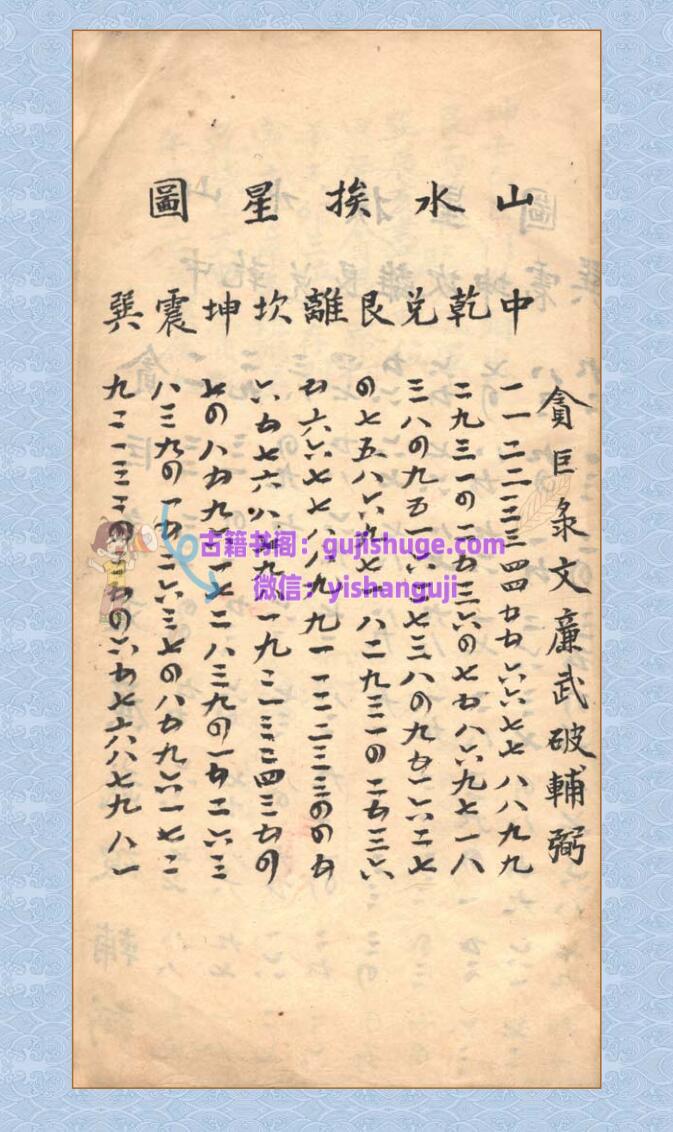 山水挨星圖
貪巨彔文廉武破輔弼
中一一二二三三四四五五六六七七八八九九
乾二九三一四二五三六四七五八六九七一八
兌三八四九五一六二七三八四九五一六二七
艮四七五八六九七一八二九三一四二五三六
離五六六七七八八九九一一二二三三四四五
坎六五七六八七九八一九二一三二四三五四
坤七四八五九六一七二八三九四一五二六三
震八三九四一五二六三七四八五九六一七二
巽九二一三二四三五四六五七六八七九八一
古籍书阁：gujishuge.com
微信：yishanguji